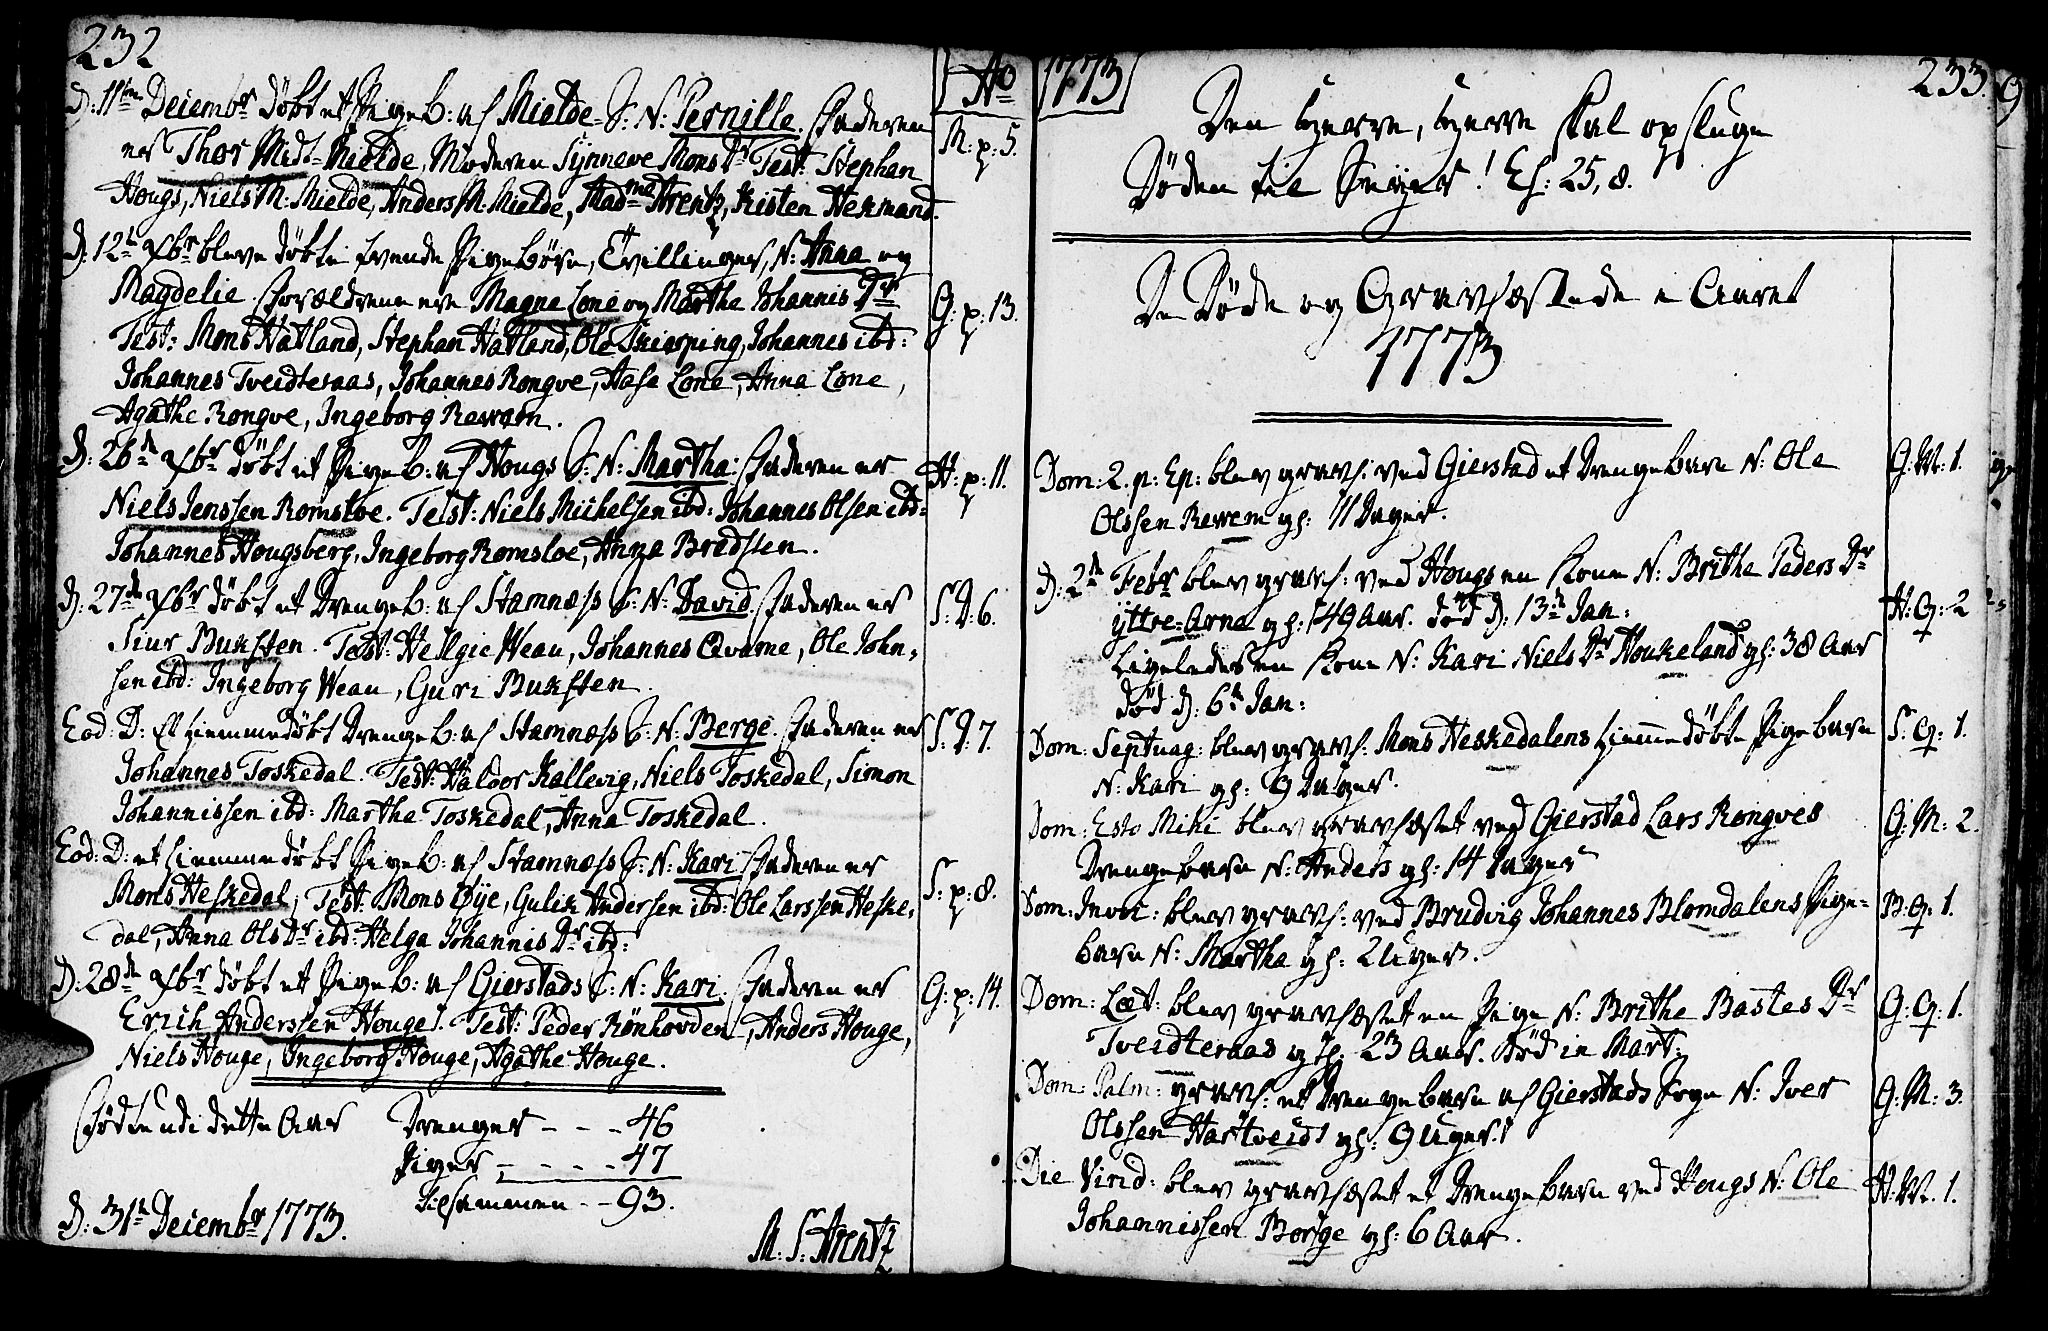 232
Ao
D: 11te Decembr døbt et Pigeb: af Mielde S: N: Pernille. Faderen
er Thor Midt-Mielde, Moderen Synneve Mons Dr Test: Stephan
Hougs, Niels M: Mielde, Anders M: Mielde, Madme Arentz, Kisten Hermand.
M: p: 5.
D: 12te Xbr bleve døbte tvende Pigebørn, Tvillinger, N: Anna og
Magdelie. Forældrene ere Magne Lone og Martha Johannis Dr
Test: Mons Hatland, Stephan Hatland, Ole Skiersping, Johannes ibd:
Johannes Tveidteraas, Johannes Rongve, Aase Lone, Anna Lone,
Agathe Rongve, Ingeborg Rewem.
G: p: 13.
D: 26de Xbr døbt et Pigeb: af Hougs S: N: Martha: Faderen er
Niels Jenssen Romsloe. Test: Niels Michelsen ibd: Johannes Olsen ibd:
Johannes Hougsberg, Ingeborg Romsloe, Anna Bredssen.
H: p: 11.
D: 27de Xbr døbt et Drengeb: af Stamness S: N: David. Faderen er
Siur Buksten. Test: Hellgie Weau, Johannes Qvame, Ole John,
sen ibd: Ingeborg Weau, Guri Buksten.
S: D: 6.
Eod: D: Et hiemmedøbt Drengeb: af Stamness S: N: Berge. Faderen er
Johannes Toskedal. Test: Haldor Kallevig, Niels Toskedal, Simon
Johannissen ibd: Martha Toskedal, Anna Toskedal.
S: D: 7.
Eod: D: et hiemmedøbt Pigeb: af Stamness S: N: Kari. Faderen er
Mons Heskedal, Test: Mons Øye, Gulik Andersen ibd: Ole Larssen Heske,
dal, Anna Ols Dr ibd: Helga Johannis Dr ibd:
S: p: 8.
D: 28de Xbr døbt et Pigeb: af Gierstads S: N: Kari. Faderen er
Erich Anderssen Houge. Test: Peder Rønhovden, Anders Houge,
Niels Houge, Ingeborg Houge, Agathe Houge.
G: p: 14.
Fødte udi dette Aar Drenger - - - 46
Piger - - - - 47
Tilsammen - - 93.
D: 31te Decembr 1773.
M: S: Arentz
1773
233.
Den Herre, Herre skal opsluge
Døden til Seyer! Es: 25, 8.
De Døde og Gravfæstede i Aaret
1773
Dom: 2. p: Ep: blev gravf: ved Gierstad et Drengebarn N: Ole
Olssen Rewem gl: 11 Dager.
G: M: 1.
D: 2de Febr blev gravf: ved Hougs en Kone N: Brithe Peders Dr
yttre-Arna gl: 49 Aar. død D: 13de Jan:
Ligeledes en Kone N: Kari Niels Dr Houkeland gl: 38 Aar
død D: 6te Jan:
H: Q: 2
Dom: Septuag: blev gravf: Mons Heskedalens hiemmedøbte Pigebarn
N: Kari gl: 9 Dager.
S: Q: 1.
Dom: Esto Mihi blev gravfæstet ved Gierstad Lars Rongves
Drengebarn N: Anders gl: 14 Dager
G: M: 2.
Dom: Invoc: blev gravf: ved Brudvig Johannes Blomdalens Pige-
barn N: Martha gl: 2 Uger.
B: Q: 1.
Dom: Læt: blev gravfæstet en Pige N: Brithe Bastes Dr
Tveidteraas gl: 23 Aar. død in Mart:
G: Q: 1.
Dom: Palm: gravf: et Drengebarn af Gierstads Sogn N: Iver
Olssen Hartveidt gl: 9 Uger.
G: M: 3.
Die Virid: blev gravfæstet et Drengebarn ved Hougs N: Ole
Johannissen Borge gl: 6 Aar.
H: M: 1.